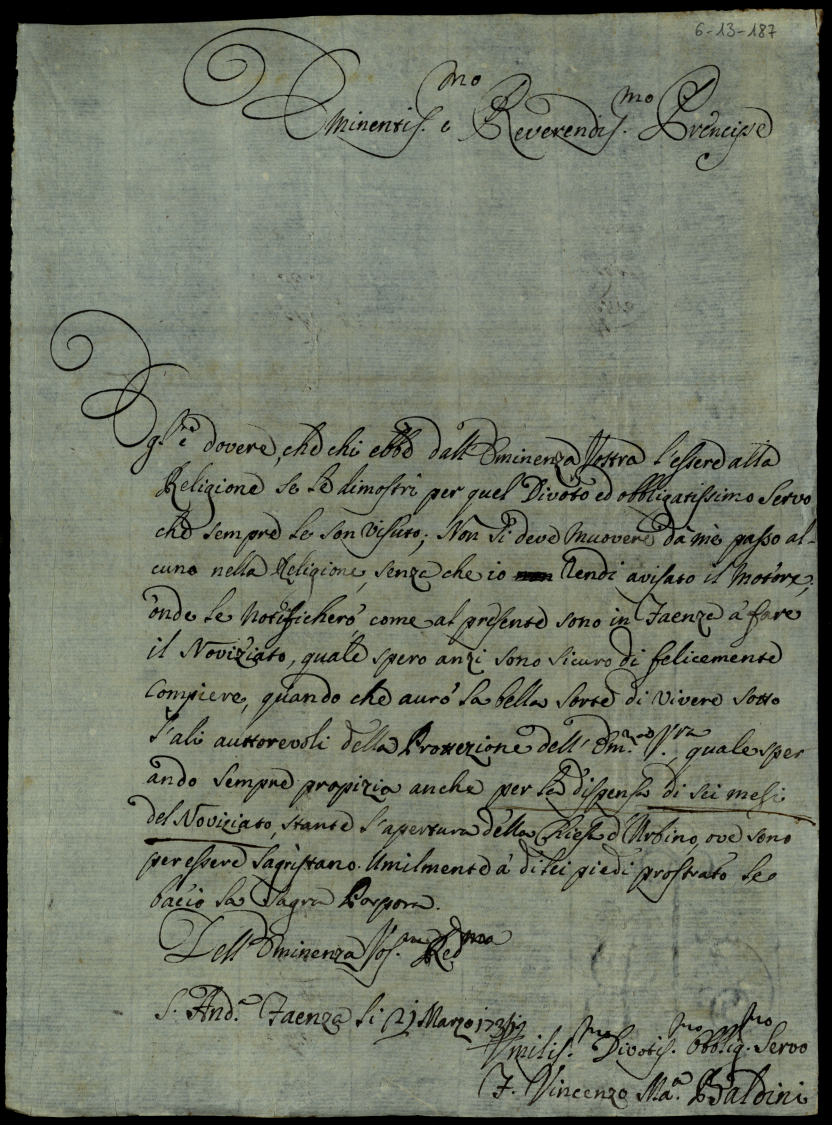 6-13-187
Eminentis.mo e Reverendis.mo Prencipe
Egl' è dovere, che chi ebbe dall'Eminenza Vostra l'essere alla
Religione se le dimostri per quel Divoto ed obbligatissimo Servo
che sempre le son visuto; Non si deve muovere da mè passo al-
cuno nella Religione, senza che io rendi avisato il Motore,
onde le notificherò come al presente sono in Faenza à fare
il Noviziato, quale spero anzi sono sicuro di felicemente
compiere, quando che aurò la bella sorte di vivere sotto
l'ali auttorevoli della Prottezione dell' Em.za V.ra quale sper
ando sempre propizia anche per la dispensa di sei mesi
del Noviziato, stante l'apertura della Chiesa d'Urbino, ove sono
per essere Sagristano. Umilmente à di lei piedi prostrato le
bacio la Sagra Porpora.
Dell'Eminenza Vos.ra Red.ma
S. And.a Faenza li 21 Marzo
Umilis.mo Divotis.mo Obblig.mo Servo
F. Vincenzo Ma.a Baldini